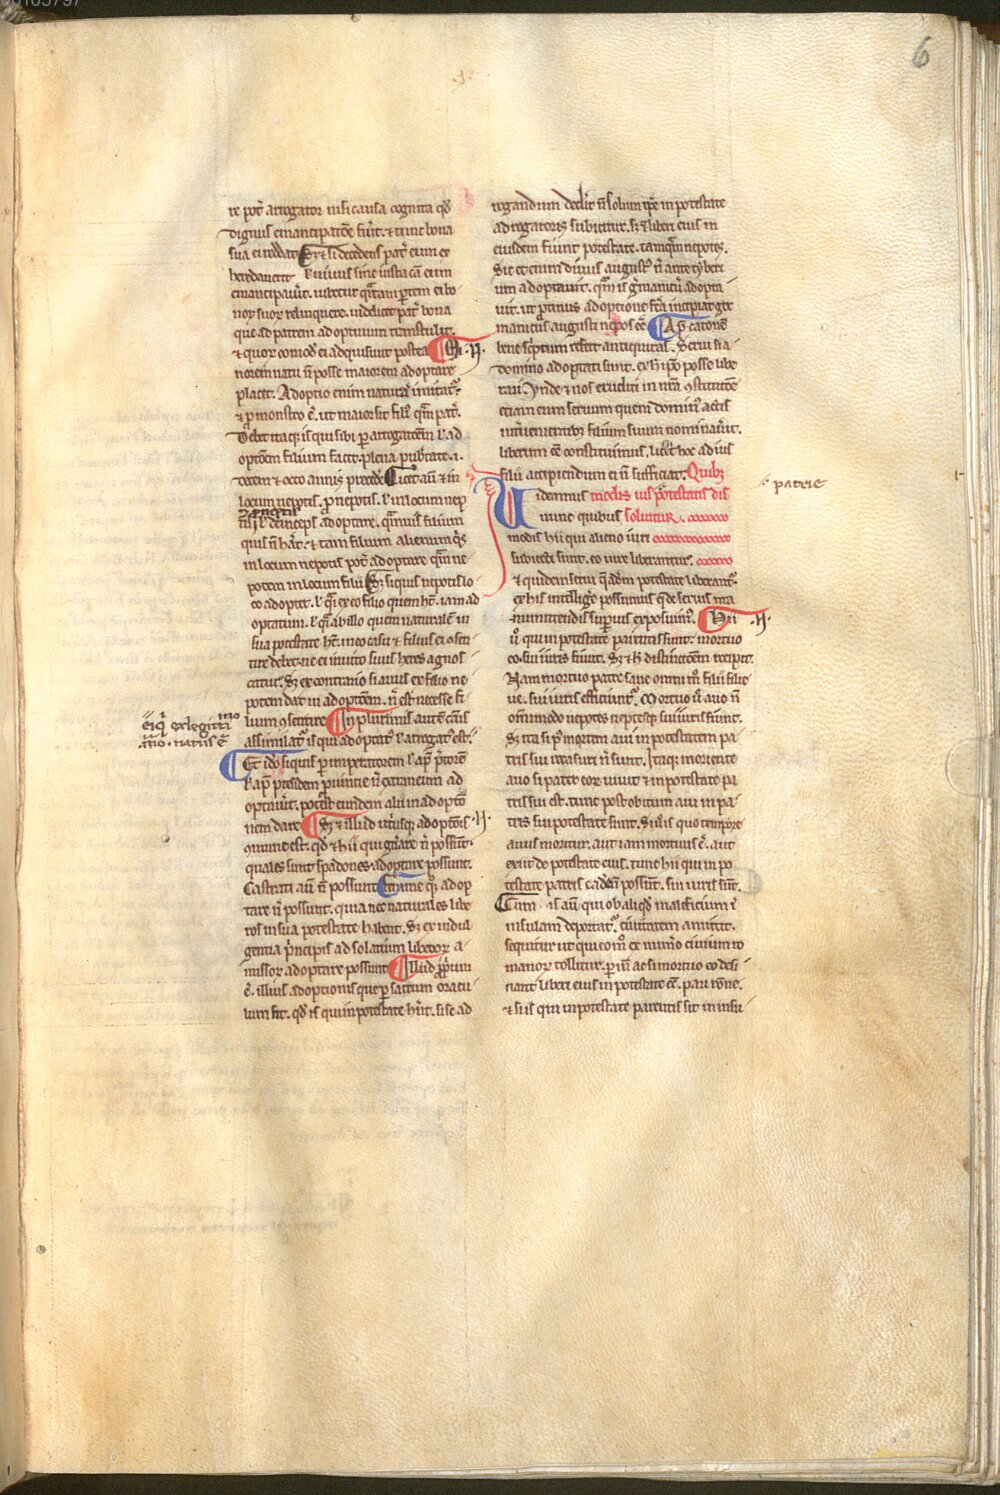 6
re pot̃ arrogator nisi causa cognita q̃d
dignus emancipatiõe fũit. ⁊ tunc bona
sua ei reddat. Sꝫ ⁊ si decedens pat̃ eum ex
heredauerit ł uiuus sine iusta cã eum
emancipauĩt. iubetur q̃rtam ꝑtem ei bo
noꝝ suoꝝ relinquere. uidelicet pat̃ bona
que ad patrem adoptiuum transtulit.
⁊ quoꝝ comodũ ei adquisiuit postea Mi
norem natu ñ posse maiorem adoptare
placet. Adoptio enim naturã imitat̃.
⁊ ꝓ monstro ẽ. ut maior sit filiꝰ q̃m pat̃.
Debet itaqꝫ is qui sibi ꝑ arrogatõem ł ad
optõem filium facit. plena pubtate .i.
decem ⁊ octo annis precedẽ Licet aũt ⁊ in
locum nepotis. ꝓneptis. ł in locum nep
tis ł deinceps adoptare. q̃muis filium
quis ñ hãt. ⁊ tam filium alienum q̃s
in locum nepotis pot̃ adoptare q̃m ne
potem in locum filii Sꝫ si quis nepotis lo
co adoptet. ł q̃i ex eo filio quem hẽt. iam ad
optatum. ł q̃i ab illo quem naturalẽ in
sua potestate hẽt. in eo casu ⁊ filius ei osen
tire debet. ne ei inuito suus heres agnos
catur. Sꝫ ex contrario si auus ex filio ne
potem dat in adoptõem. ñ est necesse fi
lium ꝯsentire In plurimis autẽ cãis
assimilat̃ is qui adoptatꝰ ł arrogatꝰ est.
Et ido si quis ꝑ imperatorem ł apđ ꝑtorẽ
ł apđ presidem ꝓuincie ñ extraneum ad
optauĩt. potest eundem alii in adoptõ
nem dare Sꝫ ⁊ illud utriusqꝫ adoptõis
ꝯmune est. qđ ⁊ hii qui gñare ñ possũt.
quales sunt spadones. adoptare possunt.
Castrati aũt ñ possunt Femine q̃ꝫ adop
tare ñ possunt. quia nec naturales libe
ros in sua potestate habent. Sꝫ ex indul
gentia ṕncipis ad solatium liberoꝝ a
missoꝝ adoptare possunt Illud ꝓprium
ẽ. illius adoptionis que ꝑ sacrum oracu
lum fit. qđ is qui in potestate hĩt. si se ad
rogandum dedit̃ ñ solum ip̃e in potestate
adrogatoris subicitur. sꝫ ⁊ liberi eius in
eiusdem fiunt potestate. tamq̃m nepotes.
Sic et enim diuus augustꝰ ñ ante tyberi
um adoptauit. q̃m is g̃manicũ adopta
uit. ut ꝓtinus adoptione fc̃a incipiat ger
manicus augusti nepos eẽ Apđ catonẽ
bene sc̃ptum refert antiquitas. Serui si a
domino adoptati sunt. ex h̃ ip̃o posse libe
rari. Vnde ⁊ nos eruditi in nr̃a ꝯstitutõe
etiam eum seruum quem dominꝰ actis
interuenientibꝫ filium suum nominauĩt.
liberum eẽ constituimus. licet hoc ad ius
filii accipiendum ei ñ sufficiat. Quibꝫ
Videamus modis ius potestatis dis
nunc quibus soluitur.
modis hii qui alieno iuri
subiecti sunt. eo iure liberantur.
⁊ quidem serui q̃adm̃ potestate liberant̃.
ex his intelligẽ possumus q̃ de seruis ma
numittendis supius exposuimꝰ. Hii
ũ qui in potestate parentis sunt. mortuo
eo. sui iuris fiunt. Sꝫ ⁊ h̃ distinctõem recipit.
Nam mortuo patre sane omni mõ filii filie
ue. sui iuris efficiunt̃. Mortuo ũ auo ñ
oĩmodo nepotes neptesqꝫ sui iuris fiunt.
Si ita si ꝑ mortem aui in potestatem pa
tris sui recasuri ñ sunt. Itaqꝫ moriente
auo si pater eoꝝ uiuit ⁊ in potestate pa
tris sui est. tunc post obitum aui in pa
tris sui potestate fiunt. Si ũ is quo tempoꝛe
auus moritur. aut iam mortuus ẽ. aut
exiit de potestate eius. tunc hii qui in po
testate patris cadẽ ñ possũt. sui iuris fiũt.
Cum is aũt qui ob aliqđ maleficium ĩ
insulam deportat̃. ciuitatem amittit.
sequitur ut qui eo mõ ex numẽo ciuium ro
manoꝝ tollitur. ꝑinde ac si mortuo eo desi
nant liberi eius in potestate eẽ. pari rõne.
⁊ si is qui in potestate parentis sit in insu
patrie
eiqꝫ ex legiti
mo. natus ẽ